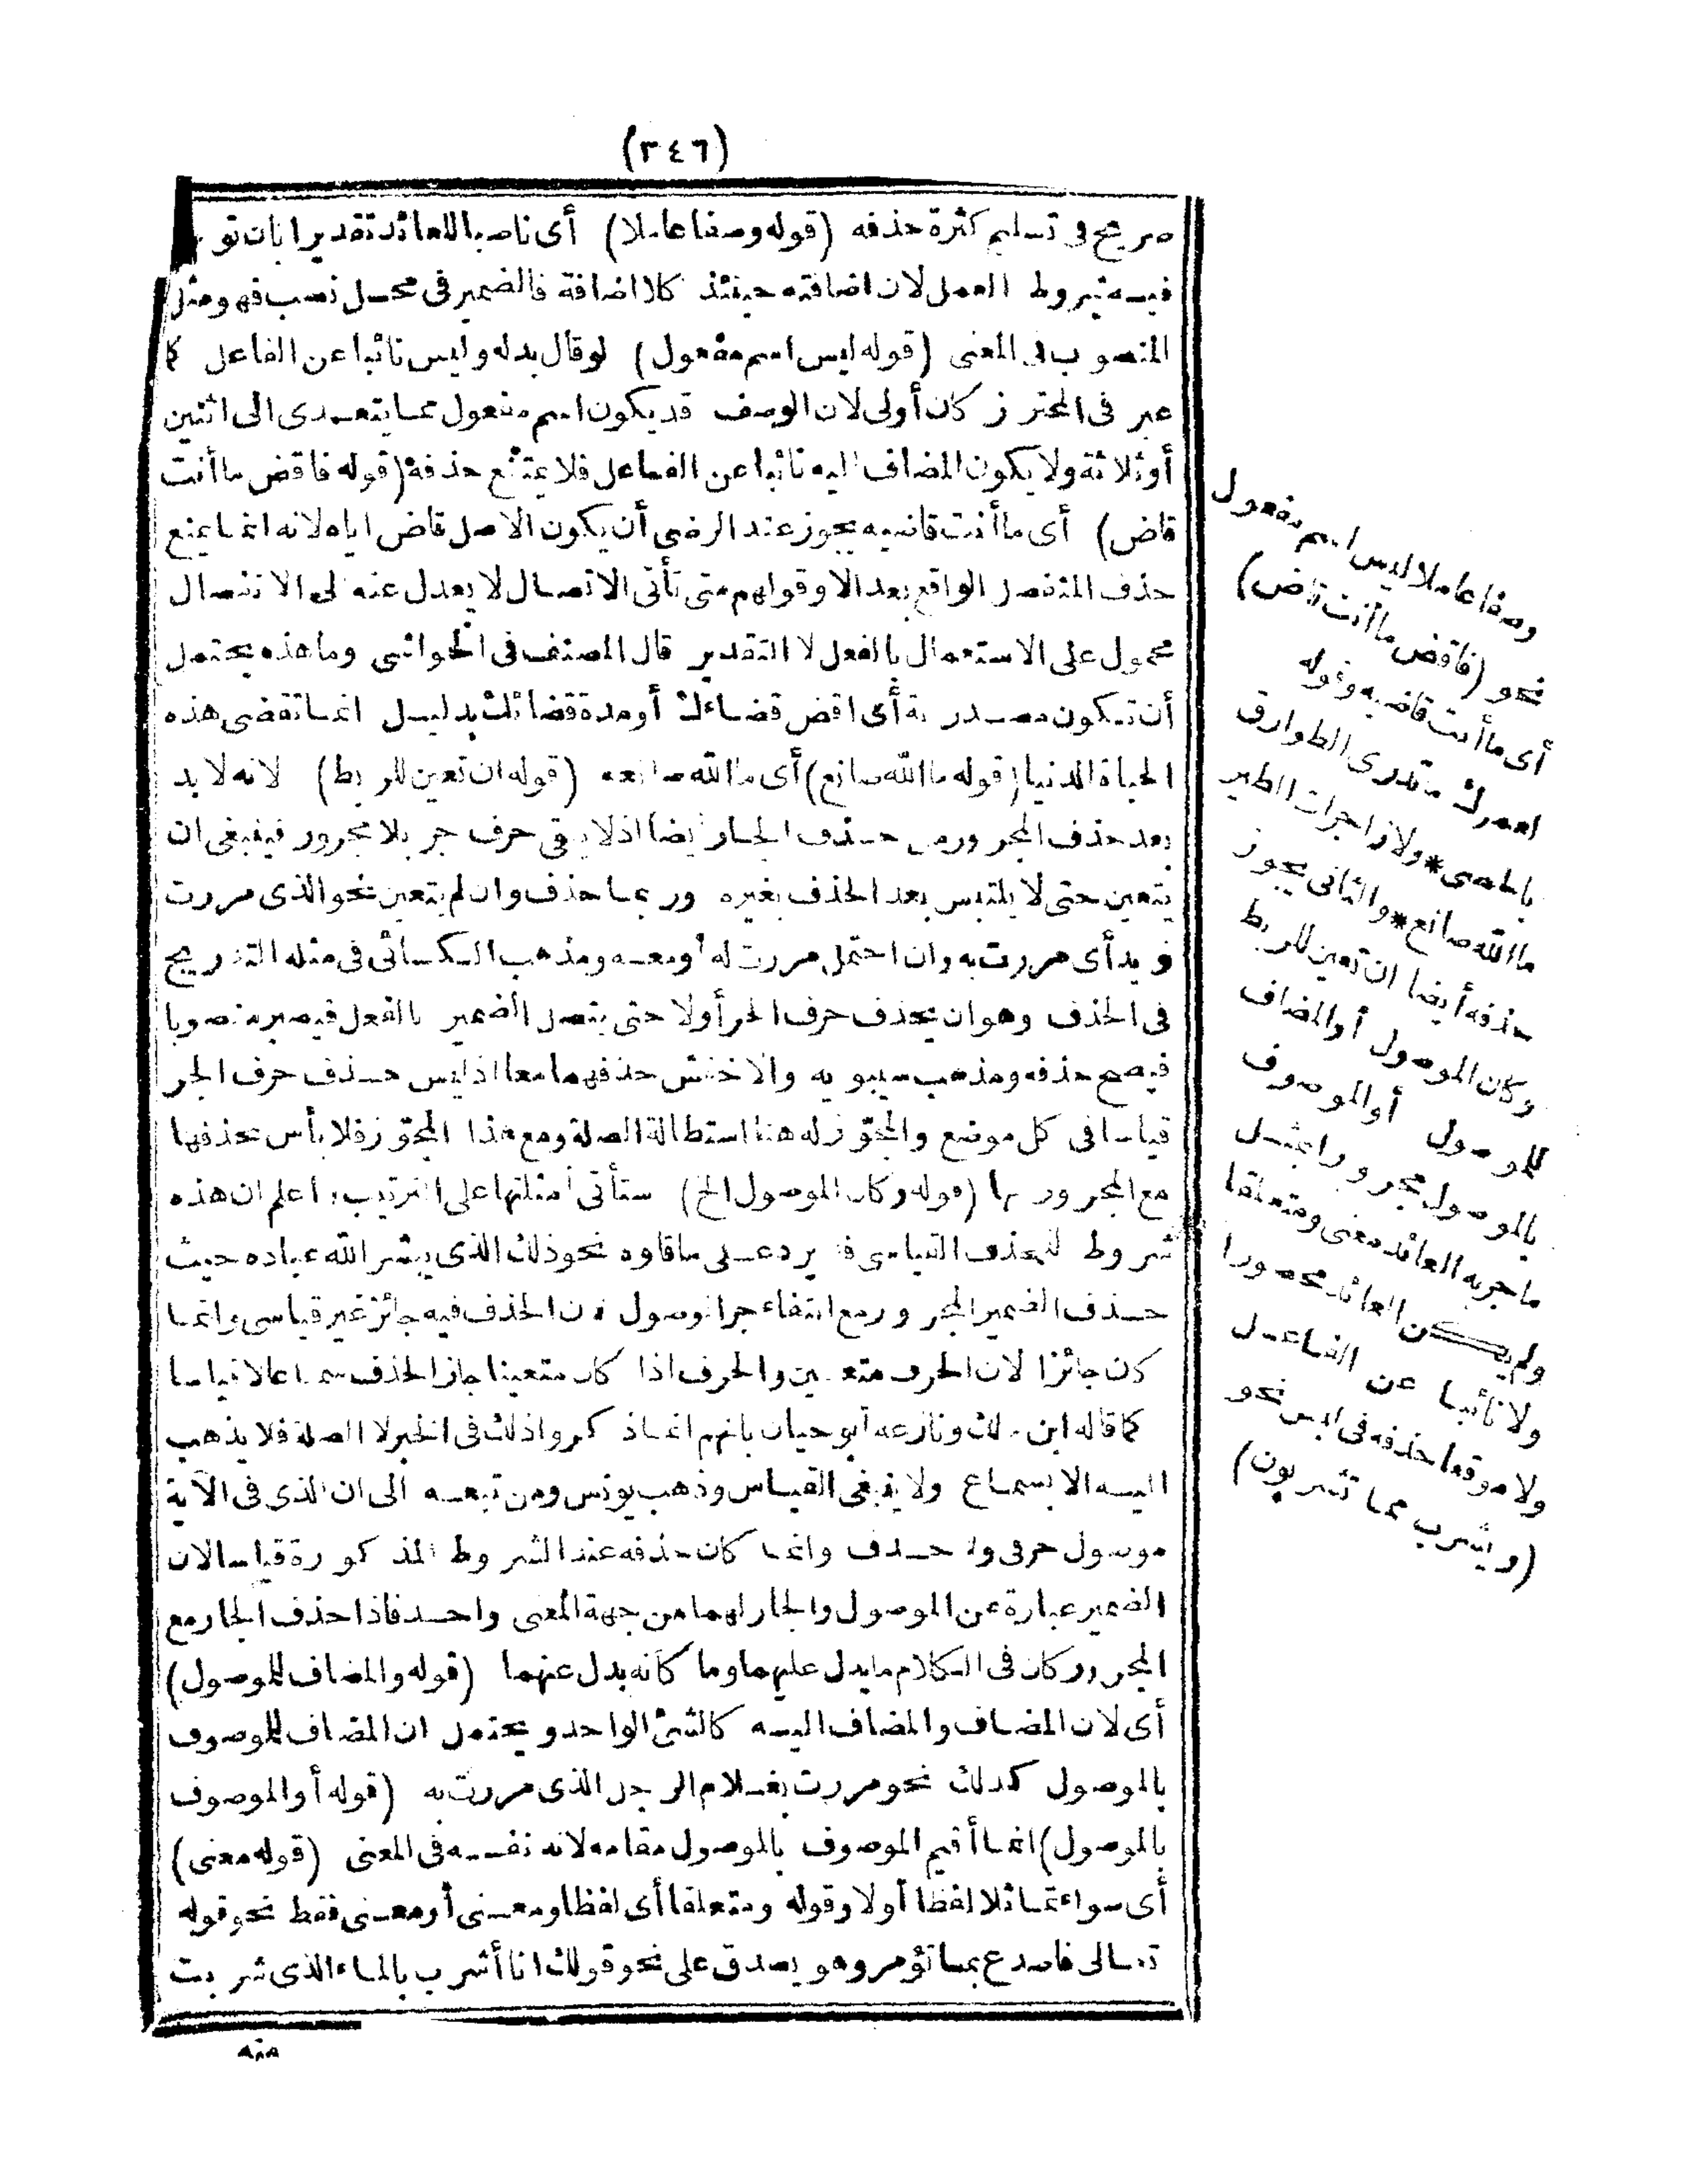 (٣٤٦)
صريح في تسليم كثرة حذفه (قوله وصفا عاملا) أى ناصبا للعائد تقديرا بان تو
فيه شروط العمل لان اضافته حينئذ كلا اضافة فالضمير فى محل نصب فهو مثل
المنصوب فى المعنى (قوله ليس اسم مفعول) لو قال بدله وليس نائبا عن الفاعل كما
عبر فى المحترز كان أولى لان الوصف قد يكون اسم مفعول مما يتعدى الى اثنين
أو ثلاثة ولا يكون المضاف اليه نائبا عن الفاعل فلا يمتنع حذفه (قوله فاقض ما أنت
قاض) أى ما أنت قاضيه يجوز عند الرضى أن يكون الاصل قاض اياه لانه انما يمنع
حذف المنفصل الواقع بعد الا وقولهم متى تأتى الاتصال لا يعدل عنه الى الانفصال
محمول على الاستعمال بالفعل لا التقدير قال المصنف فى الحواشى وما هذه يحتمل
أن تكون مصدرية أى اقض قضاءك أو مدة قضائك بدليل انما تقضى هذه
الحياة الدنيا (قوله ما الله صانع) أى ما الله صانعه (قوله ان تعين للربط) لانه لا بد
بعد حذف المجرور من حذف الجار أيضا اذ لا يبقى حرف جر بلا مجرور فينبغى ان
يتعين حتى لا يلتبس بعد الحذف بغيره وربما حذف وان لم يتعين نحو الذى مررت
زيد أى مررت به وان احتمل مررت له أو معه ومذهب الكسائى فى مثله التدريج
فى الحذف وهو ان يحذف حرف الجر أولا حتى يتصل الضمير بالفعل فيصير منصوبا
فيصح حذفه ومذهب سيبويه والاخفش حذفهما معا اذ ليس حذف حرف الجر
قياسا فى كل موضع والمجوّز له هنا استطالة الصلة ومع هذا المجوّز فلا بأس بحذفها
مع المجرور بها (قوله وكان الموصول الخ) ستأتى أمثلتها على الترتيب واعلم ان هذه
شروط للحذف القياسى فلا يرد على ما قاوه نحو ذلك الذى يبشر الله عباده حيث
حذف الضمير المجرور مع انتفاء جر الموصول لان الحذف فيه جائز غير قياسى وانما
كان جائزا لان الحرف متعين والحرف اذا كان متعينا جاز الحذف سماعا لا قياسا
كما قاله ابن مالك ونازعه أبو حيان بانهم انما ذكروا ذلك فى الخبر لا الصلة فلا يذهب
اليه الا بسماع ولا ينبغى القياس وذهب يونس ومن تبعه الى ان الذى فى الآية
موصول حرفى ولا حذف وانما كان حذفه عند الشروط المذكورة قياسا لان
الضمير عبارة عن الموصول والجار لهما من جهة المعنى واحد فاذا حذف الجار مع
المجرور كان فى الكلام ما يدل عليهما وما كأنه بدل عنهما (قوله والمضاف للموصول)
أى لان المضاف والمضاف اليه كالشئ الواحد ويحتمل ان المضاف للموصوف
بالموصول كذلك نحو مررت بغلام الرجل الذى مررت به (قوله أو الموصوف
بالموصول) انما أقيم الموصوف بالموصول مقامه لانه نفسه فى المعنى (قوله معنى)
أى سواء تماثلا لفظا أولا وقوله ومتعلقا أى لفظا ومعنى أو معنى فقط نحو قوله
تعالى فاصدع بما تؤمر وهو يصدق على نحو قولك انا أشرب بالماء الذى شربت
منه
وصفا عاملا ليس اسم مفعول
نحو (فاقض ما أنت قاض)
أى ما أنت قاضيه وقوله
لعمرك ما تدرى الطوارق
بالحصى * ولا زاجرات الطير
ما الله صانع * والثانى يجوز
حذفه أيضا ان تعين للربط
وكان الموصول أو المضاف
للموصول أو الموصوف
بالموصول مجرورا بمثل
ما جر به العائد معنى ومتعلقا
ولم يكن العائد محصورا
ولا نائبا عن الفاعل
ولا موقعا حذفه فى لبس نحو
(ويشرب مما تشربون)